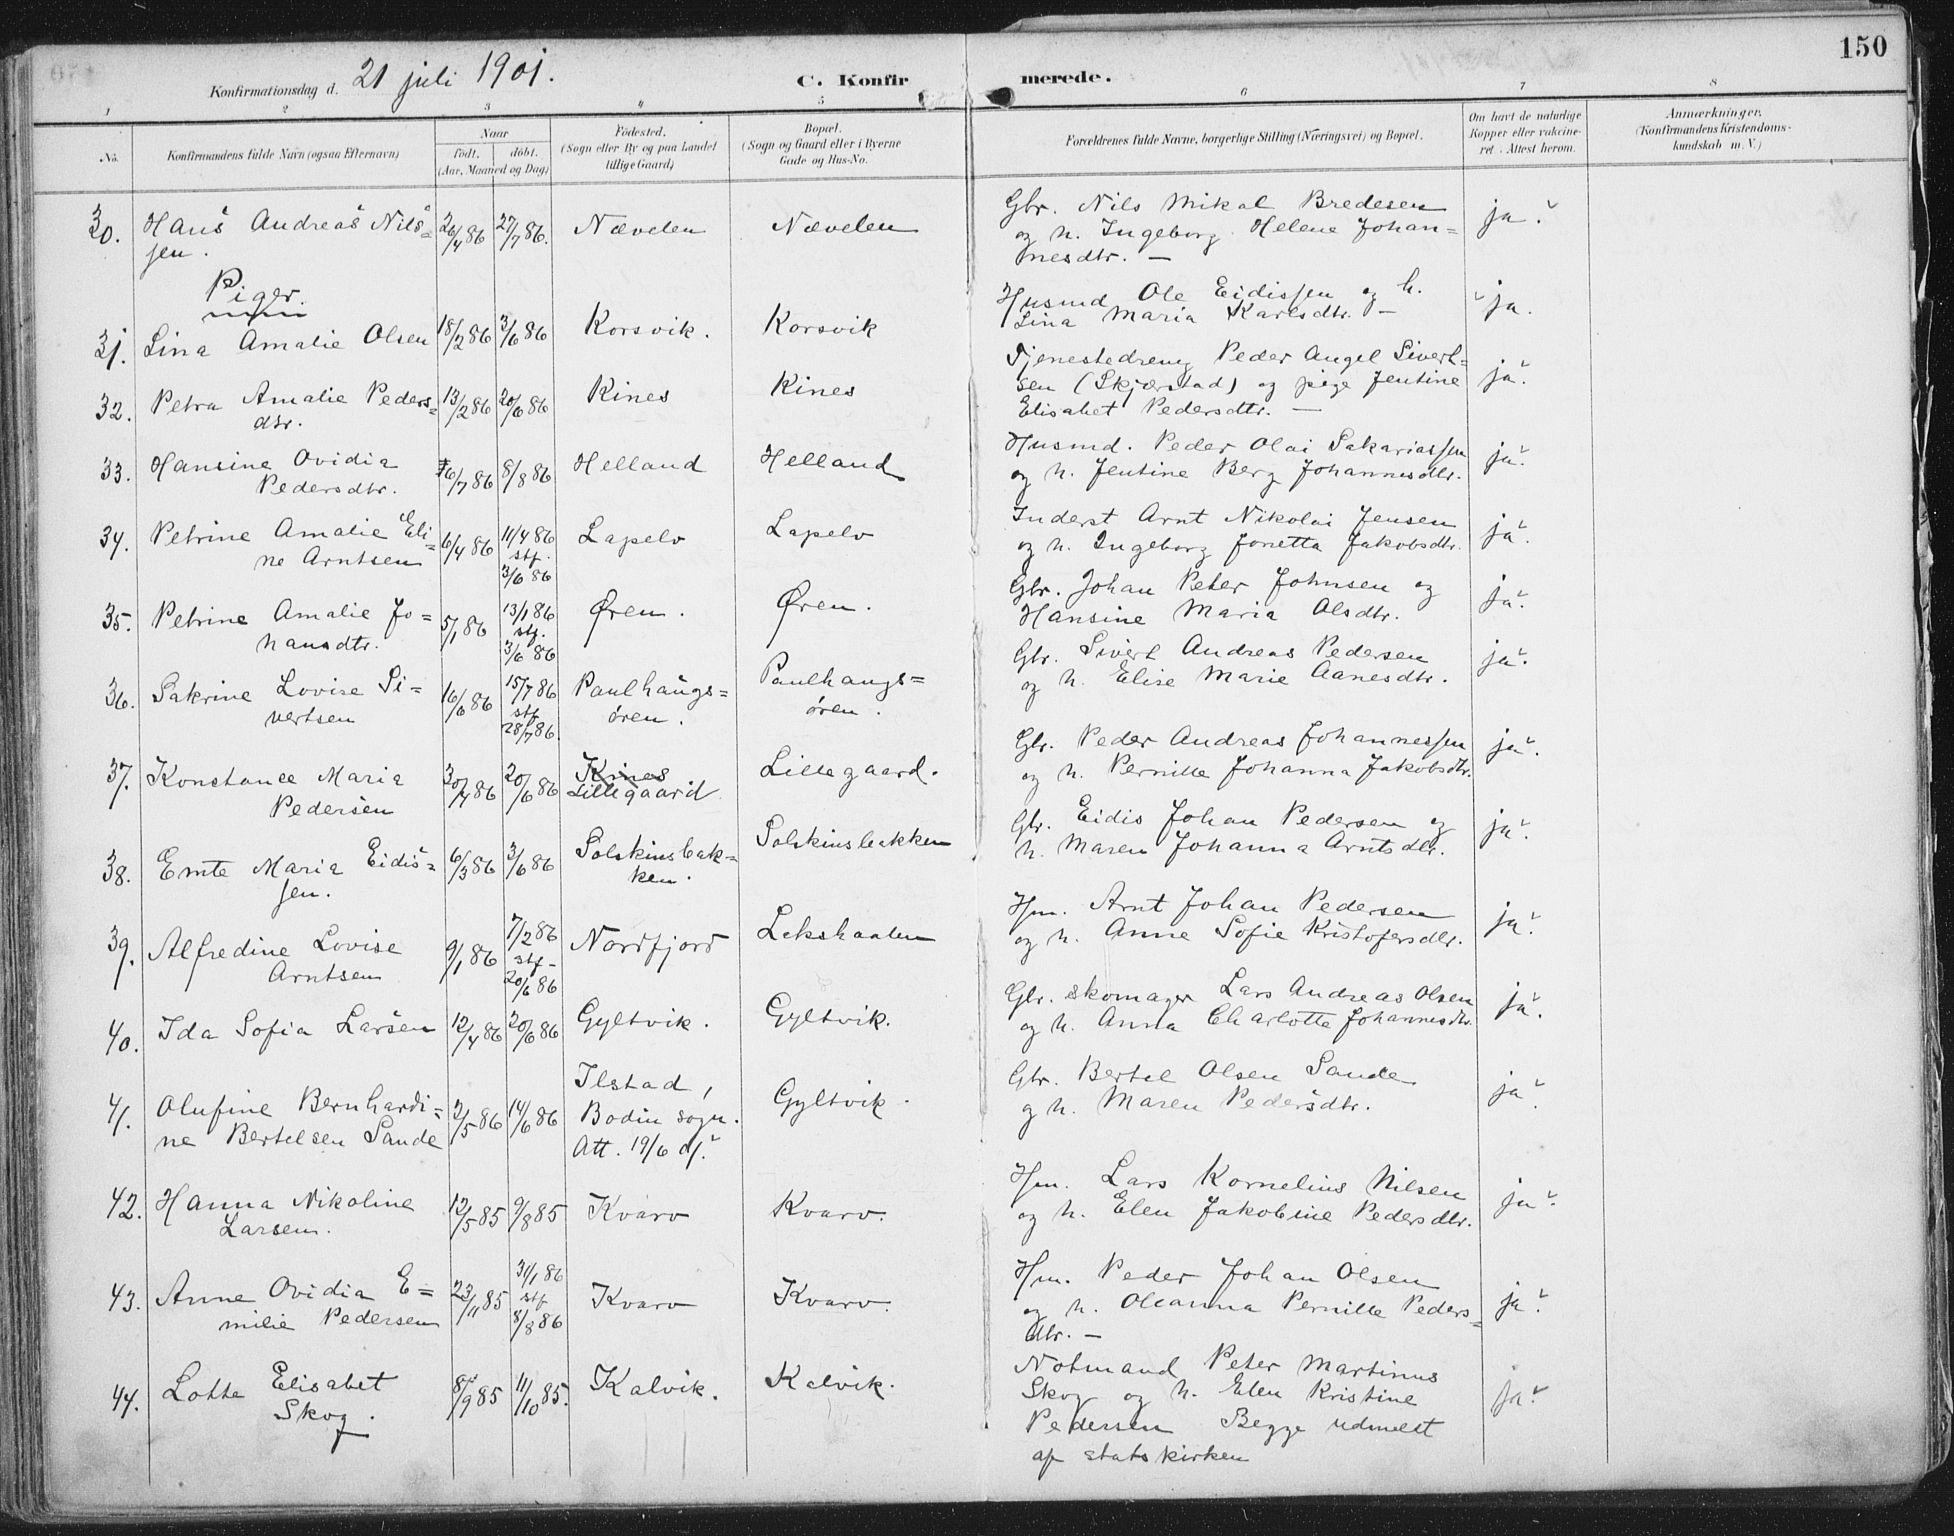 150
Konfirmationsdag d. 21 juli 1901.
C. Konfirmerede.
1 2 3 4 5 6 7 8
No.
Konfirmandens fulde Navn (ogsaa Efternavn)
Naar
födt. döbt.
(Aar, Maaned og Dag)
Födested.
(Sogn eller By og paa Landet
tillige Gaard)
Bopæl.
(Sogn og Gaard eller i Byerne
Gade og Hus-No.
Forældrenes fulde Navne, borgerlige Stilling (Næringsvei) og Bopæl.
Om havt de naturlige
Kopper eller vakcine-
ret. Attest herom.
Anmærkninger.
(Konfirmandens Kristendoms-
kundskab m. V.)
30. Hans Andreas Nils= 26/4 86 27/7 86. Nævelen Nævelen Gbr. Nils Mikal Bredesen ja.
sen. og h. Ingeborg Helene Johan=
nesdtr. —
Piger.
31. Lina Amalie Olsen 18/2 86 3/6 86 Korsvik. Korsvik Husmd Ole Eidissen og h. ja.
Lina Maria Karlsdtr. —
32. Petra Amalie Peders= 13/2 86 20/6 86 Kines Kines Tjenestedreng Peder Angel Sivert= ja.
dtr. sen (Skjærstad) og pige Jentine
Elisabet Pedersdtr. —
33. Hansine Ovidia 16/7 86 8/8 86 Helland Helland Husmd. Peder Olai Sakariassen ja.
Pedersdtr. og h. Jentine Berg Johannesdtr.
34. Petrine Amalie Eli= 6/4 86 11/4 86 Lapelv Lapelv Inderst Arnt Nikolai Jensen ja.
ne Arntsen stf. 3/6 86 og h. Ingeborg Jonetta Jakobsdtr.
35. Petrine Amalie Jo= 5/1 86 13/1 86 Øren. Øren. Gbr. Johan Peter Johnsen og ja.
hansdtr. stf. 3/6 86 Hansine Maria Olsdtr.
36. Sakrine Lovise Si= 16/6 86 15/7 86 Paulhaugs= Paulhaugs= Gbr. Sivert Andreas Pedersen ja.
vertsen stf 28/7 86. øren. øren. og h. Elise Marie Aanesdtr.
37. Konstance Maria 30/4 86 20/6 86 Kines Lillegaard. Gbr. Peder Andreas Johannessen ja.
Pedersen Lillegaard og h. Pernille Johanna Jakobsdtr.
38. Emte Maria Eidis= 6/3 86 3/6 86 Solskinsbak= Solskinsbakken Gbr. Eidis Johan Pedersen og ja.
sen. ken. h. Maren Johanna Arntsdtr.
39. Alfredine Lovise 9/1 86 7/2 86 Nordfjord Lekshaalen Hm. Arnt Johan Pedersen ja.
Arntsen stf - 20/6 86 og h. Anne Sofie Kristofersdtr.
40. Ida Sofia Larsen 12/4 86 20/6 86 Gyltvik. Gyltvik. Gbr. skomager Lars Andreas Olsen ja.
og h. Anna Charlotta Johannesdtr.
41. Olufine Bernhardi= 2/5 86 14/6 86 Ilstad, Gyltvik. Gbr. Bertel Olsen Sande ja.
ne Bertelsen Sande Bodin sogn. og h. Maren Pedersdtr.
Att. 19/6 d/.
42. Hanna Nikoline 12/5 85 9/8 85 Kvarv Kvarv. Hm. Lars Kornelius Nilsen ja.
Larsen. og h. Elen Jakobine Pedersdtr.
43. Anne Ovidia E= 23/11 85 31/1 86 Kvarv Kvarv. Hm. Peder Johan Olsen ja.
milie Pedersen stf 8/8 86 og h. Oleanna Pernille Peders=
dtr. —
44. Lotte Elisabet 8/9 85 11/10 85. Kalvik. Kalvik. Notmand Peter Martinus ja.
Skog. Skog og h. Elen Kristine
Pedersen Begge udmeldt
af statskirken